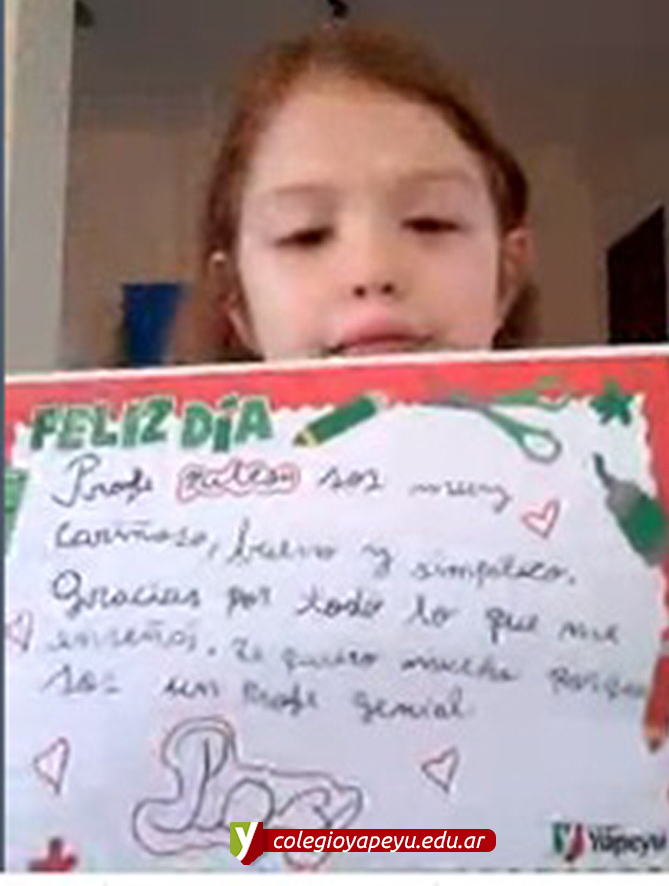 FELIZ DÍA
Profe Mateo sos muy
cariñoso, bueno y simpático.
Gracias por todo lo que me
enseñás. Te quiero mucho porque
sos un profe genial
colegioyapeyu.edu.ar
Yapeyú